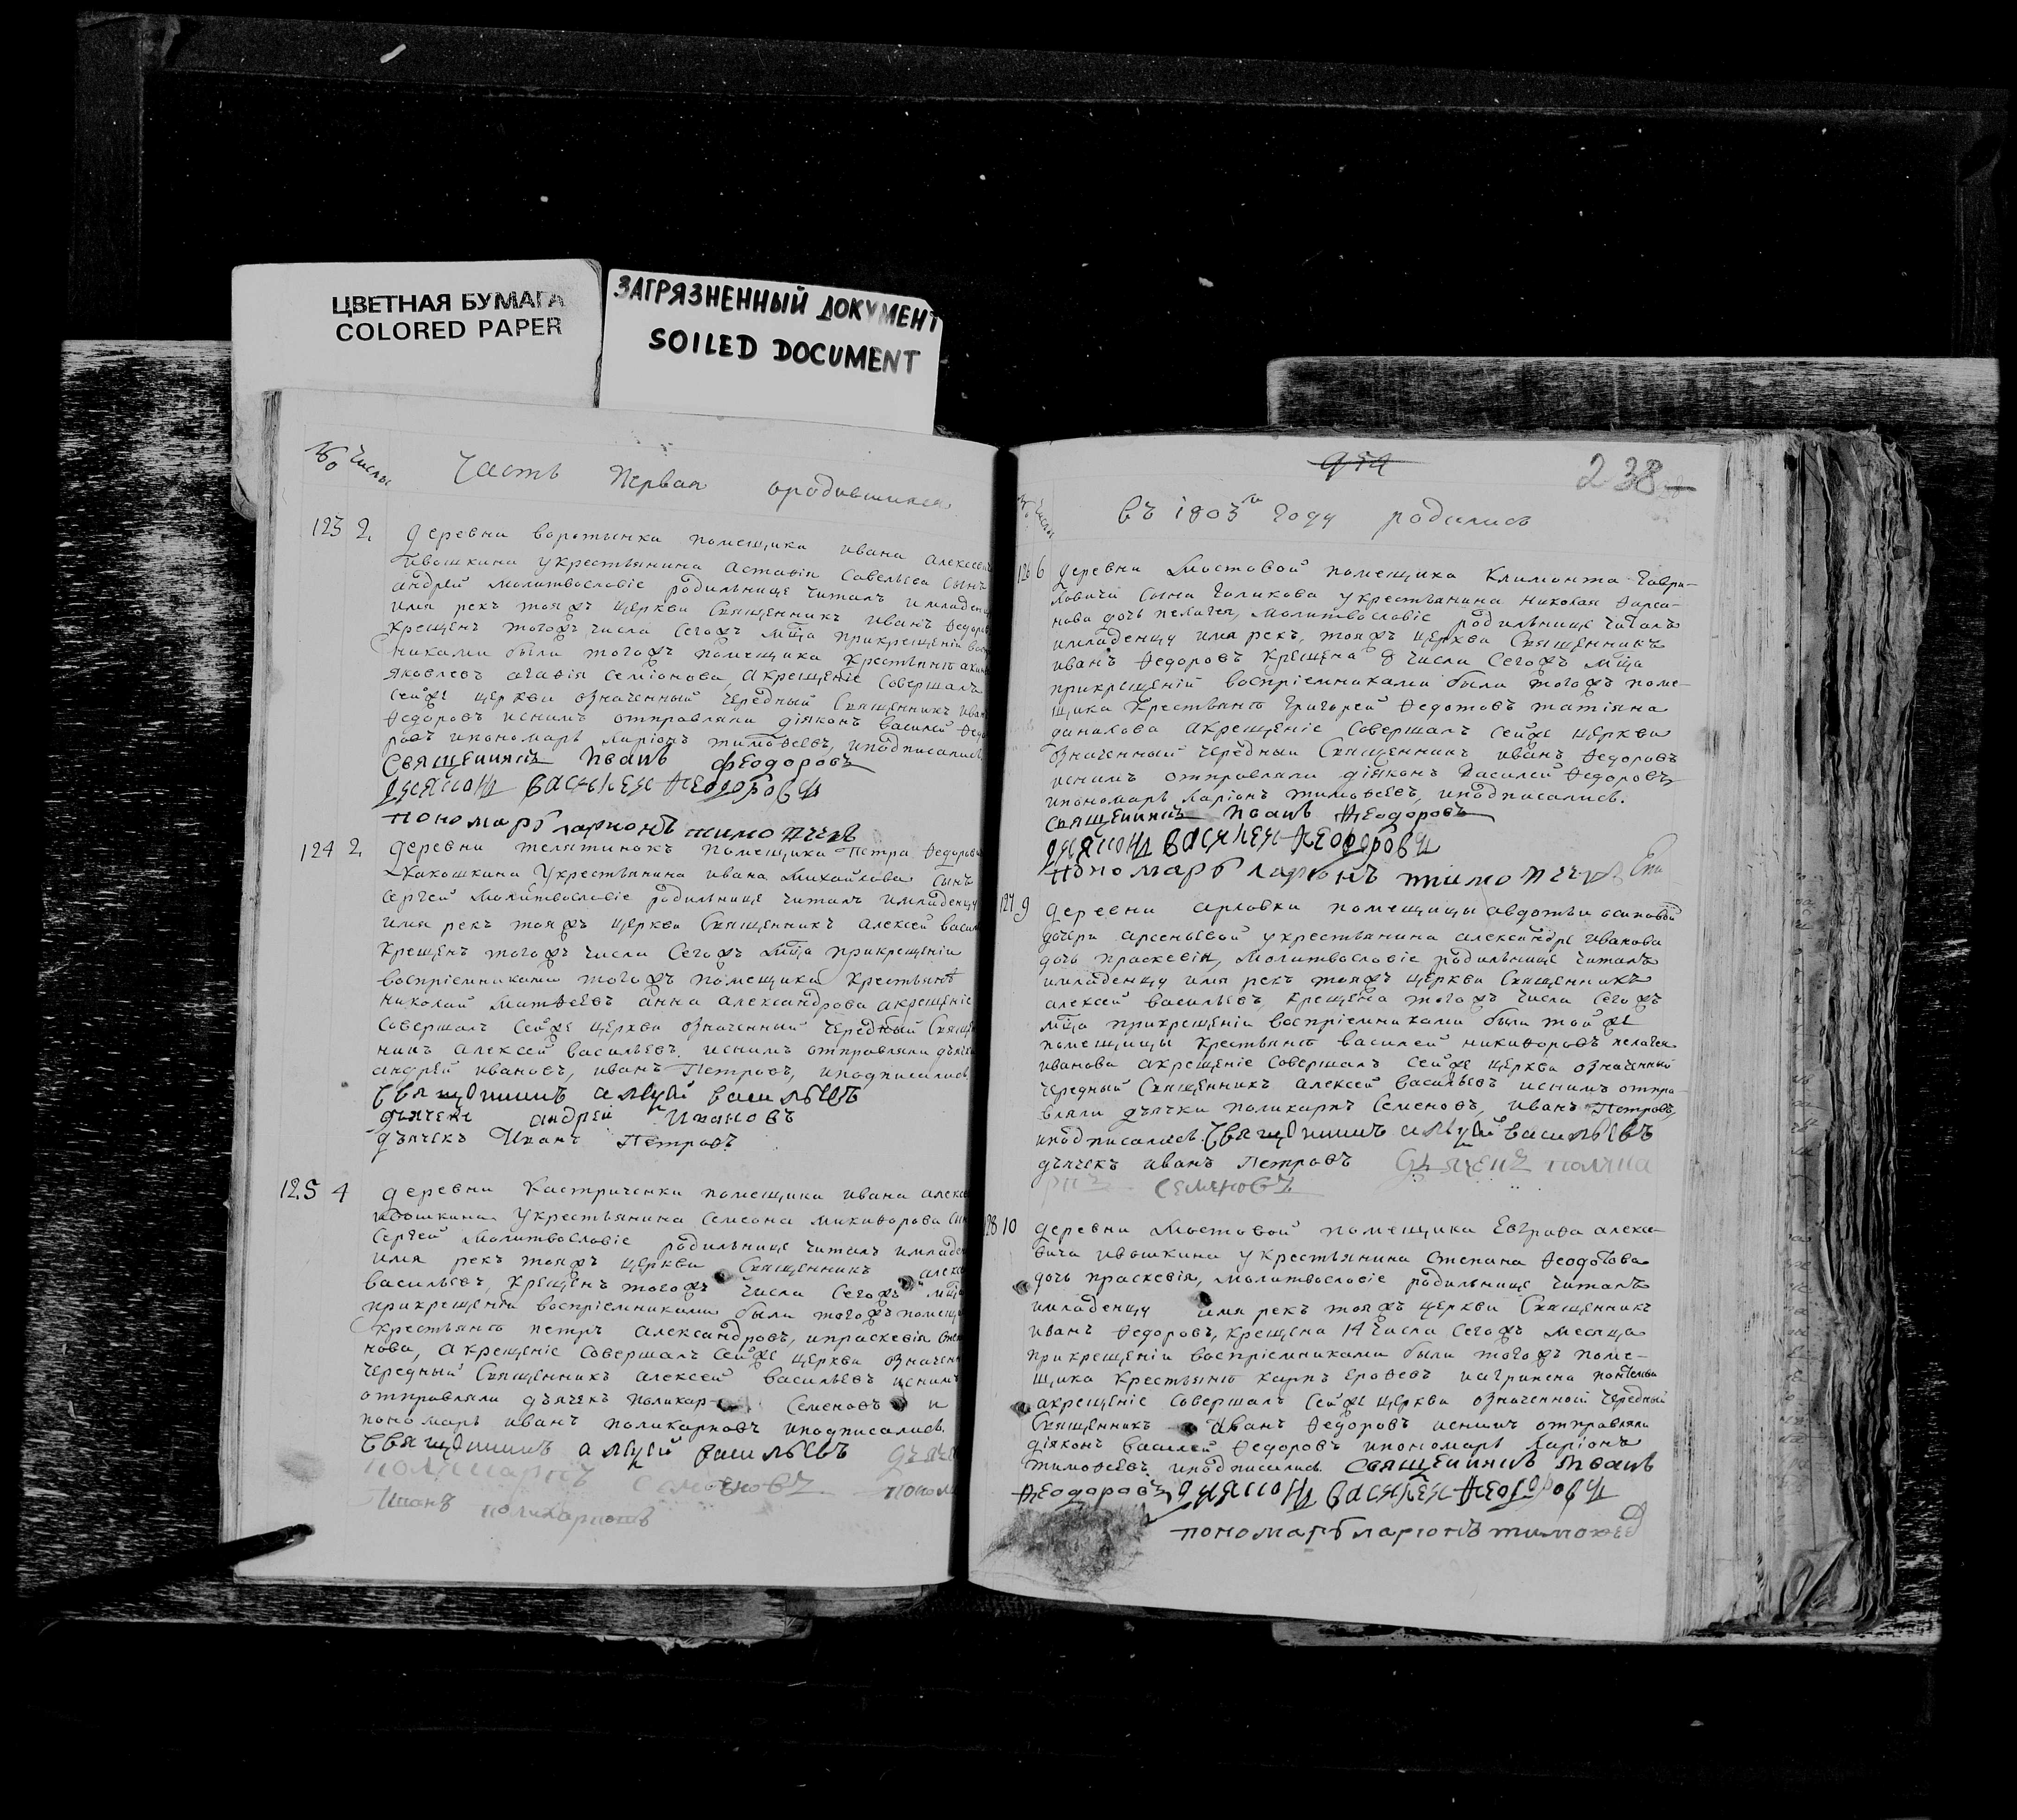 ЦВЕТНАЯ БУМАГА
COLORED PAPER
ЗАГРЯЗНЕННЫЙ ДОКУМЕНТ
SOILED DOCUMENT
№ числы
Часть Первая ородившихся
123 2
деревни воротынки помещика ивана алексеевича
ивошкина укрестьянина Астафія Савельева сынъ
андрей молитвословіе родильнице читалъ имладенцу
имя рекъ тояжъ церкви Священникъ иванъ Федоровъ
крещенъ тогожъ числа Сегожъ мца прикрещеніи
никами были тогожъ помещика крестьяне
Яковлевъ агафія Семіонова, акрещеніе Совершалъ
Сейже церкви означенный чередный Священникъ иванъ
Федоровъ иснимъ отправляли діяконъ василей Федо
ровъ ипономарь Ларіонъ тимофеевъ, иподписались
Священникъ Иванъ Феодоровъ
диаконъ василеи Феодоровъ
пономарь ларионъ тимофеевъ
124 2
деревни телятинокъ помещика Петра Федорова
Какошкина укрестьянина ивана Михайлова сынъ
Сергей молитвословіе родильнице читалъ имладенцу
имя рекъ тояжъ церкви Священникъ алексей васил
крещенъ тогожъ числа Сегожъ мца прикрещеніи
воспріемниками тогожъ помещика крестьяне
николай Матфеевъ анна александрова акрещеніе
Совершалъ Сейже церкви означенный чередный Священ
никъ алексей васильевъ иснимъ отправляли дьячки
андрей ивановъ, иванъ Петровъ, иподписались
Священникъ алексей васильевъ
дьячекъ андрей Ивановъ
дьячекъ Иванъ Петровъ
125 4
деревни Кастриченки помещика ивана алексе
ивошкина укрестьянина Семеона Микифорова сынъ
Сергей молитвословіе родильнице читалъ имладен
имя рекъ тояжъ церкви Священникъ алексей
васильевъ, крещенъ тогожъ числа Сегожъ мца
прикрещеніи воспріемниками были тогожъ помещи
крестьяне петръ александровъ, ипраскевія
нова, акрещеніе Совершалъ Сейже церкви означенн
чередный Священникъ алексей васильевъ иснимъ
отправляли дьячекъ поликар Семеновъ и
пономарь иванъ поликарповъ иподписались
Священникъ алексей васильевъ дьяче
поликарпъ семеновъ поном
Иванъ поликарповъ
238
числы
въ 1803м году родились
126 6
деревни Мостовой помещика Климонта Гаври-
ловича сына Голикова укрестьянина николая Фирса-
нова дочь пелагея, молитвословіе родильнице читалъ
имладенцу имя рекъ, тояжъ церкви Священникъ
иванъ Федоровъ крещена 8 числа Сегожъ мца
прикрещеніи воспріемниками были тогожъ поме-
щика крестьяне Григорей Федотовъ татіяна
данилова акрещеніе Совершалъ Сейже церкви
Означенный чередный Священникъ иванъ Федоровъ
иснимъ отправляли діяконъ Василей Федоровъ
ипономарь Ларіонъ тимофеевъ, иподписались.
Священникъ Иванъ Феодоровъ
диаконъ василеи Феодоровъ
пономарь ларионъ тимофеевъ
127 9
деревни арловки помещицы авдотьи осиповой
дочери арсеньевой укрестьянина александре Иванова
дочь праскевія, молитвословіе родильнице читалъ
имладенцу имя рекъ тояжъ церкви Священникъ
алексей васильевъ, крещена тогожъ числа Сегожъ
мца прикрещеніи воспріемниками были тойже
помещицы крестьяне василей никифоровъ пелагея
иванова акрещеніе Совершалъ Сейже церкви означенный
чередный Священникъ алексей васильевъ иснимъ отпра-
вляли дьячки поликарпъ Семеновъ, иванъ Петровъ,
иподписались. Священникъ алексей васильевъ
дьячекъ иванъ Петровъ дьячекъ полика
рпъ семеновъ
128 10
деревни Мостовой помещика Евграфа алекс-
вича ивошкина укрестьянина Степана Феодотова
дочь праскевія, молитвословіе родильнице читалъ
имладенцу имя рекъ тояжъ церкви Священникъ
иванъ Федоровъ, крещена 14 числа Сегожъ месяца
прикрещеніи воспріемниками были тогожъ поме-
щика крестьяне карпъ Ерофеевъ иагрипена
акрещеніе Совершалъ Сейже церкви означенной чередный
Священникъ иванъ Федоровъ иснимъ отправляли
діяконъ василей Федоровъ ипономарь Ларіонъ
тимофеевъ иподписались Священникъ Иванъ
Феодоровъ диаконъ василеи Феодоровъ
пономарь ларионъ тимофеев